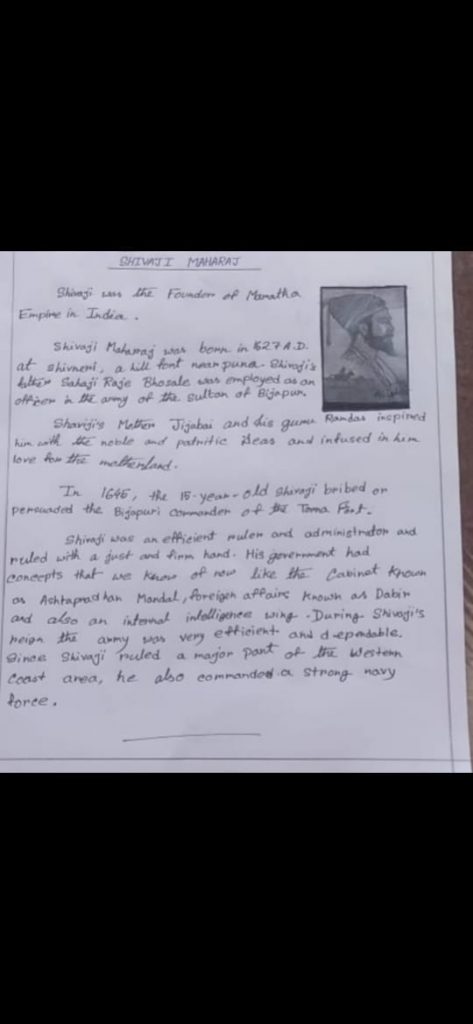 SHIVAJI MAHARAJ
Shivaji was the Founder of Maratha
Empire in India.
Shivaji Maharaj was born in 1627 A.D.
at shivneri, a hill fort near puna. Shivaji's
father Sahaji Raje Bhosale was employed as an
officer in the army of the Sultan of Bijapur.
Shaviji's Mother Jijabai and his guru Ramdas inspired
him with the noble and patritic ideas and infused in him
love for the motherland.
In 1645, the 15-year-old Shivaji bribed or
persuaded the Bijapuri commander of the Torna Fort.
Shivaji was an efficient ruler and administrator and
ruled with a just and firm hand. His government had
concepts that we know of now like the Cabinet Known
as Ashtapradhan Mandal, foreign affairs Known as Dabir
and also an internal intelligence wing. During Shivaji's
reign the army was very efficient and dependable.
Since Shivaji ruled a major part of the Western
Coast area, he also commanded a strong navy
force.